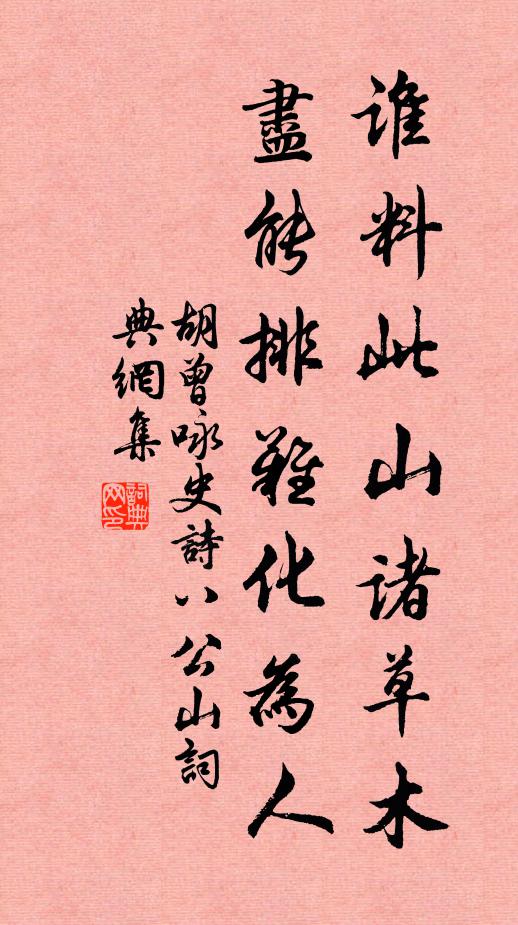 誰料此山諸草木
盡能排難化為人
胡曾咏史詩八公山詞
典網集
詞典
网印